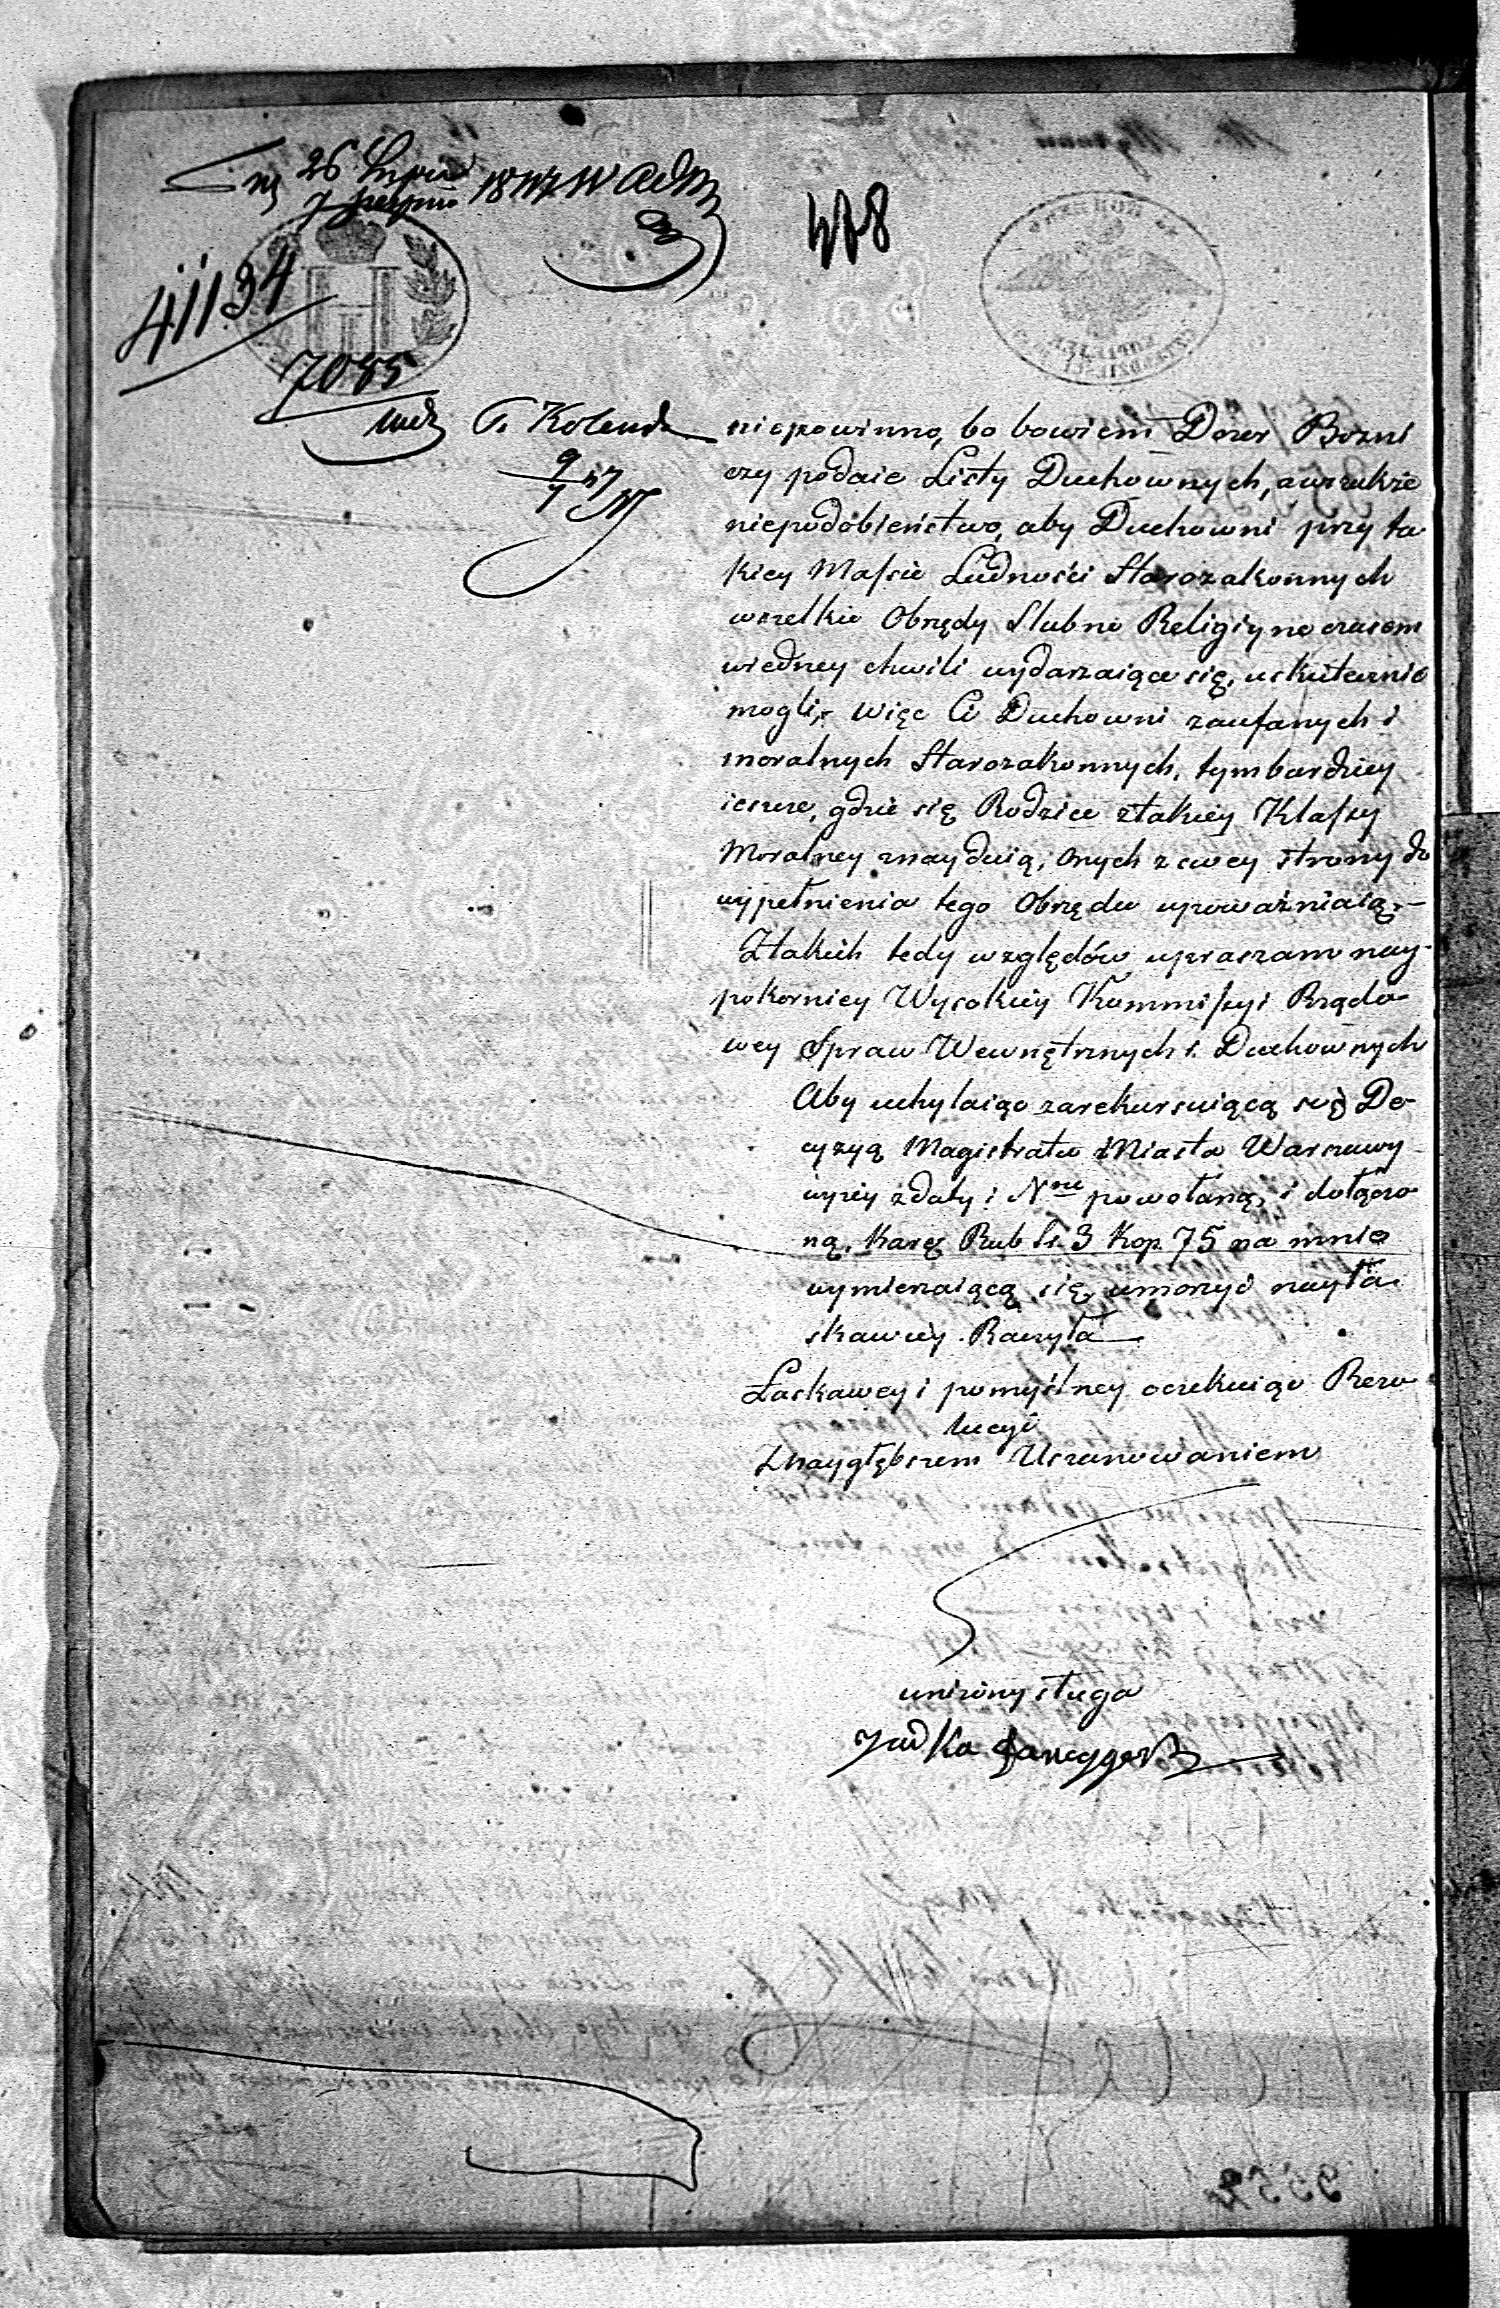 26 Lipca
7 Sierpnia 1847 W Adm
478
41134
7085
P. Kolenda
niepowinno, bo bowiem Dozor Bozni
czy podaie Listy Duchownych, a wszakże
niepodobieństwo, aby Duchowni przy ta
kiey Massie Ludności Starozakonnych
wszelkie Obrzędy Slubne Religiyne czasem
wiedney chwili wydarzaiące się, uskutecznić
mogli, więc Ci Duchowni zaufanych i
moralnych Starozakonnych, tymbardziey
ieszcze, gdzie się Rodzice ztakiey Klassy
Moralney znayduią, onych z swey strony do
wypełnienia tego Obrzędu upoważniaią.—
Ztakich tedy względów upraszam nay-
pokorniey Wysokiey Kommissyi Rządo-
wey Spraw Wewnętrznych i Duchownych
Aby uchylaiąc zarekursuiącą się De-
cyzyą Magistratu Miasta Warszawy
wyżey z daty i Nru powołaną, i dołączo
ną, Karę Rub Sr. 3 Kop. 75 na mnie
wymierzaiącą się, umorzyć nayła-
skawiey Raczyła—
Łaskawey i pomyślney oczekuiąc Rezo-
lucyi
Znaygłębszem Uszanowaniem
uniżony sługa
Judka